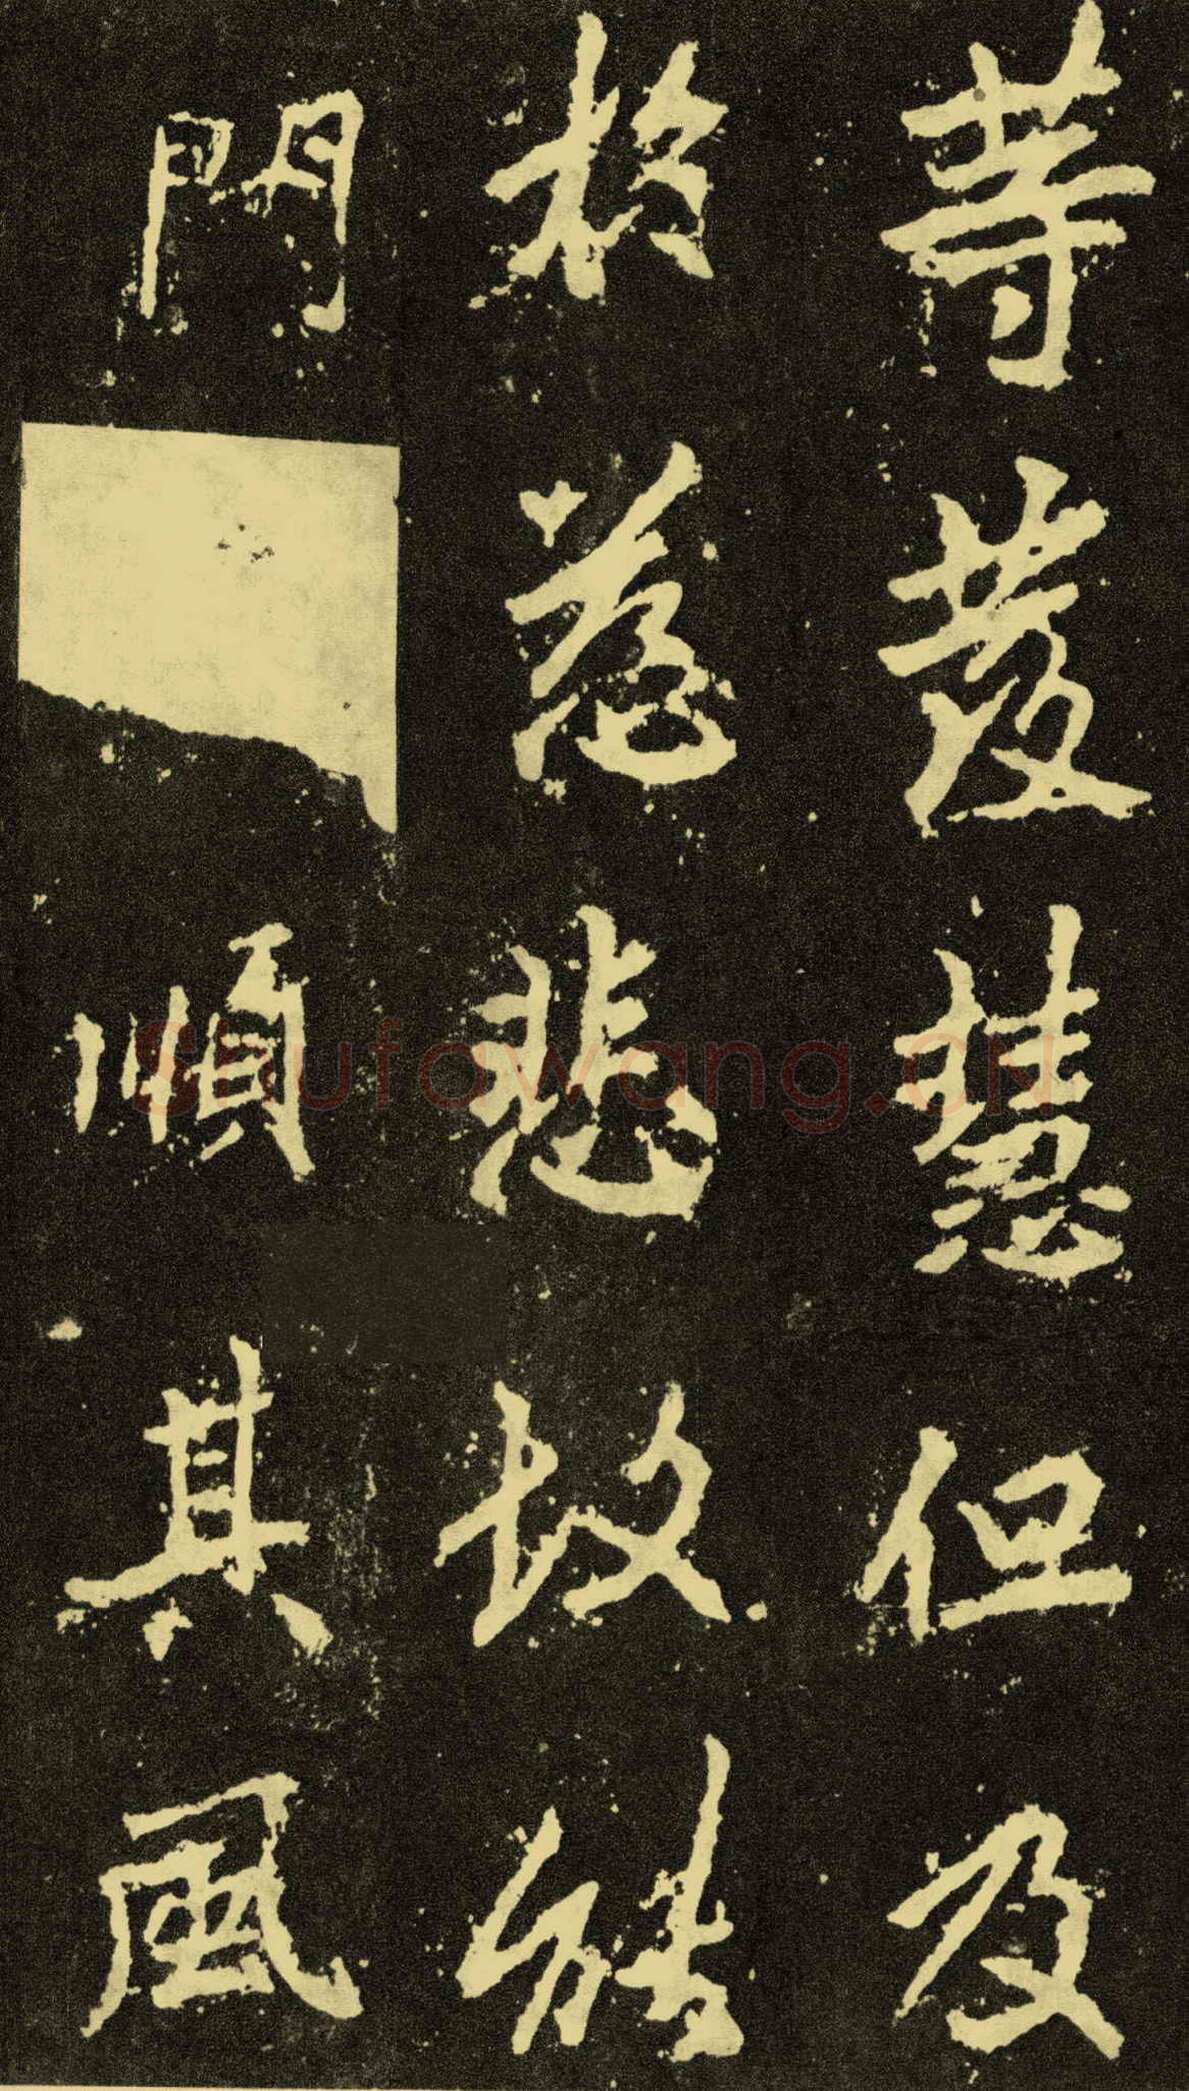 等發慧但及
於慈悲故能
門順其風
Shufawang.CN